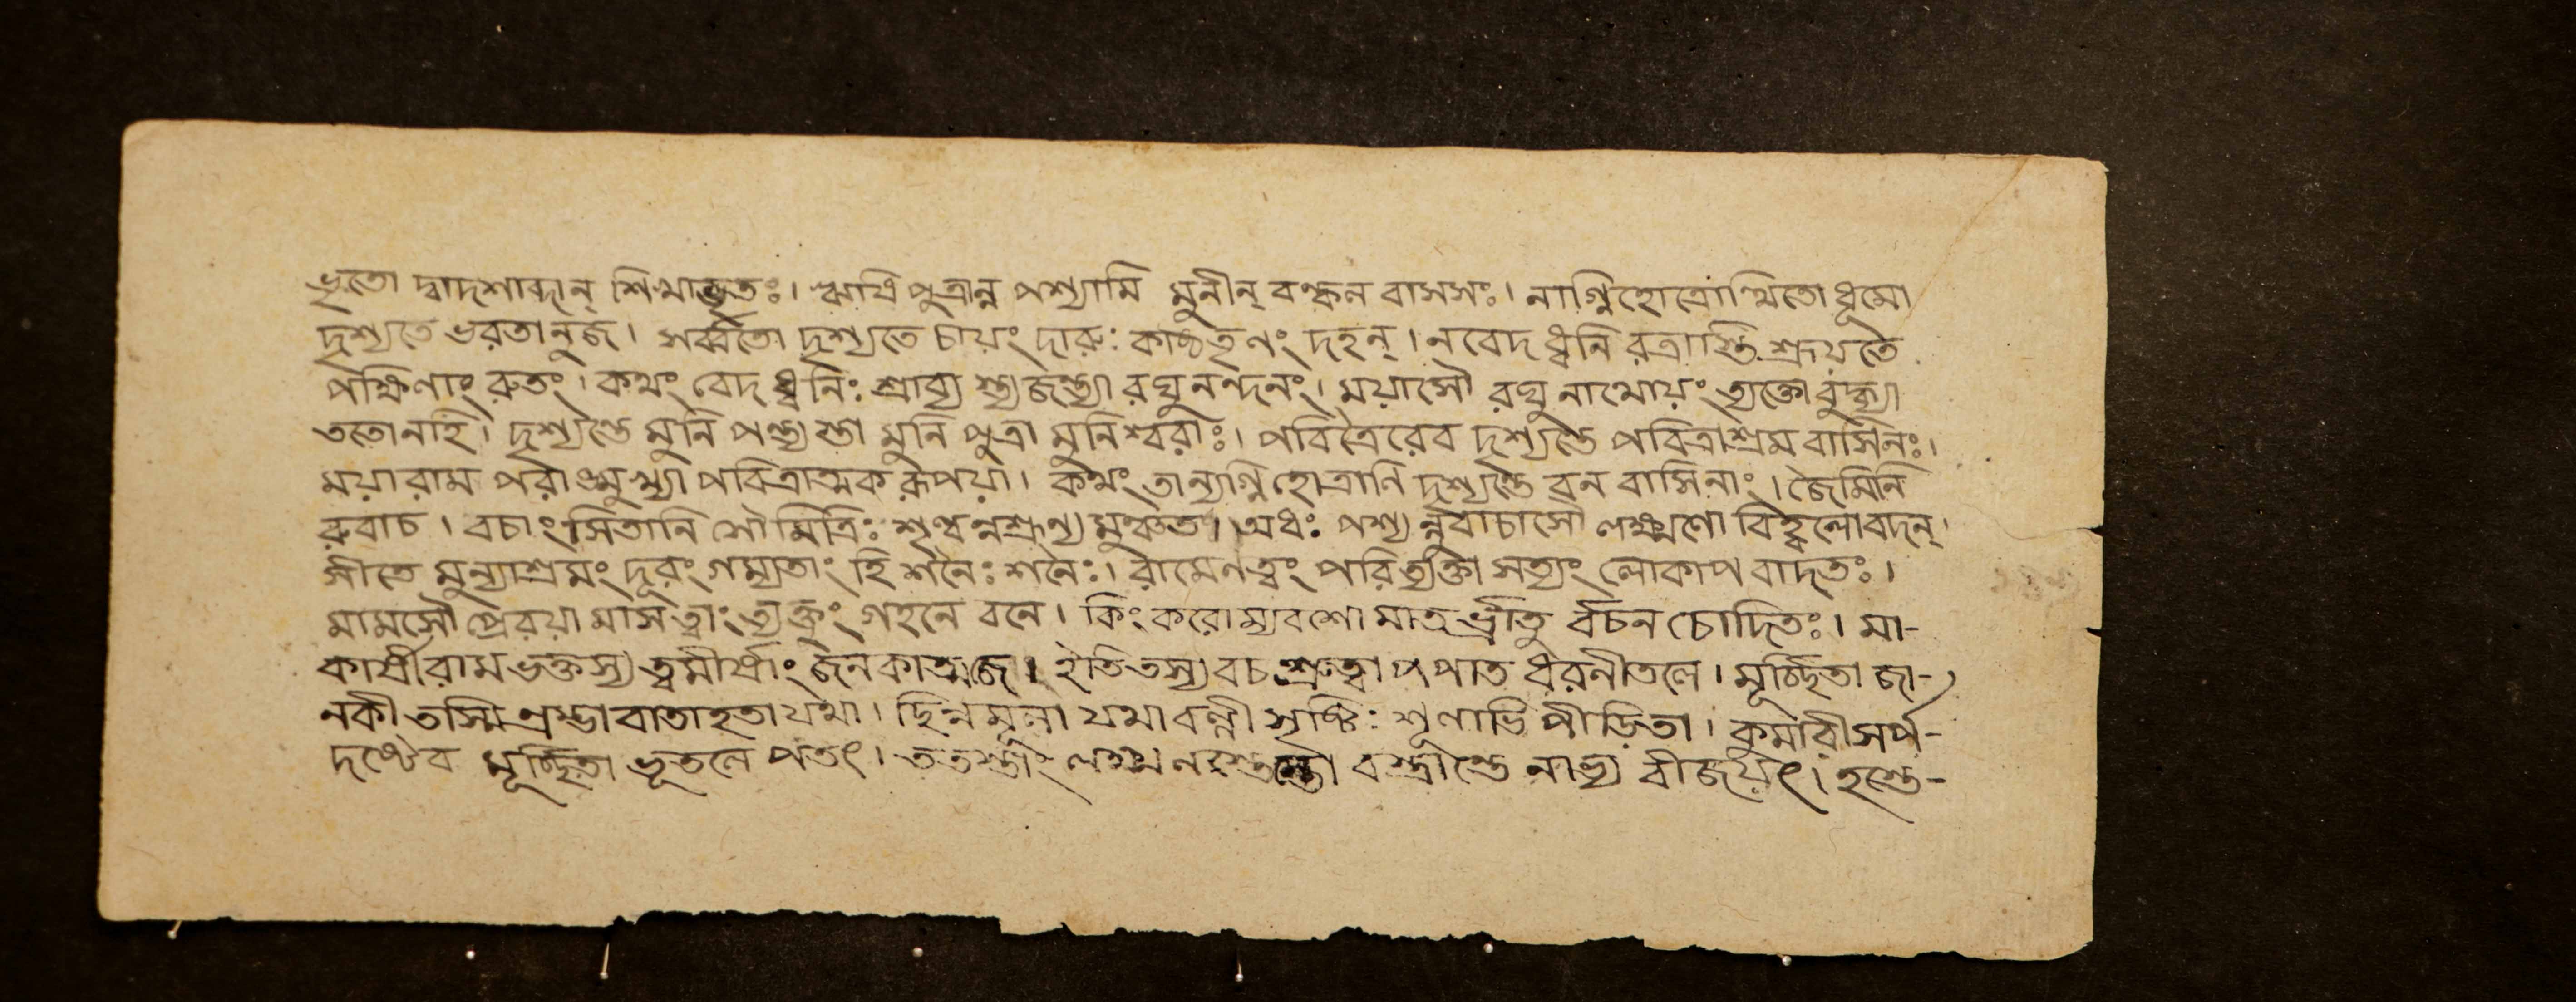 ভৃতো দ্বাদশাব্দান্ শিখাভৃতঃ। ঋষি পুত্রান্ন পশ্যামি মুনীন্ বল্কল বাসসঃ। নাগ্নিহোত্রোত্থিতো ধূমো
দৃশ্যতে ভরতানুজ। সর্ব্বতো দৃশ্যতে চায়ং দারুঃ কাষ্ঠতৃণং দহন্। ন বেদ ধ্বনি রত্রাস্তি শ্রূয়তে
পক্ষিণাং রুতং। কথং বেদ ধ্বনিঃ শ্রাব্য স্ত্যজন্ত্যা রঘু নন্দনং। ময়াসৌ রঘু নাথোয়ং ত্যক্তো বুদ্ধ্যা
ততোনহি। দৃশ্যন্তে মুনি পত্ন্যস্তা মুনি পুত্রা মুনিশ্বরাঃ। পবিত্রৈরেব দৃশ্যন্তে পবিত্রাশ্রম বাসিনঃ।
ময়া রাম পরাঙ্মুখ্যা পবিত্রাত্মক রূপয়া। কথং তান্যগ্নি হোত্রানি দৃশ্যন্তে বন বাসিনাং। জৈমিনি
রুবাচ। বচাংসিতানি সৌমিত্রিঃ শৃণ্বন্নশ্রূণ্য মুঞ্চত। অধঃ পশ্যন্নুবাচাসৌ লক্ষ্মণো বিহ্বলোবদন্।
সীতে মুন্যাশ্রমং দূরং গম্যতাং হি শনৈঃ শনৈঃ। রামেনত্বং পরিত্যক্তা সত্যং লোকাপ বাদতঃ।
মামসৌ প্রেরয়া মাস ত্বাং ত্যক্তুং গহনে বনে। কিং করোম্যবশো মাতর্ভ্রাতু র্বচন চোদিতঃ। মা-
কার্ষী রাম ভক্তস্য ত্বমীর্ষাং জনকাত্মজে। ইতি তস্য বচ শ্রুত্বা পপাত ধরনীতলে। মূর্চ্ছিতা জা-
নকী তস্মি ন্রম্ভা বাতাহতা যথা। ছিন্নমূলা যথা বল্লী শৃণাভি পীড়িতা। কুমারী সর্প-
দষ্টেব মূর্চ্ছিতা ভূতলে পতৎ। ততস্তাং লক্ষ্মন বস্ত্রান্তে নাভ্য বীজয়ৎ। হস্তে-